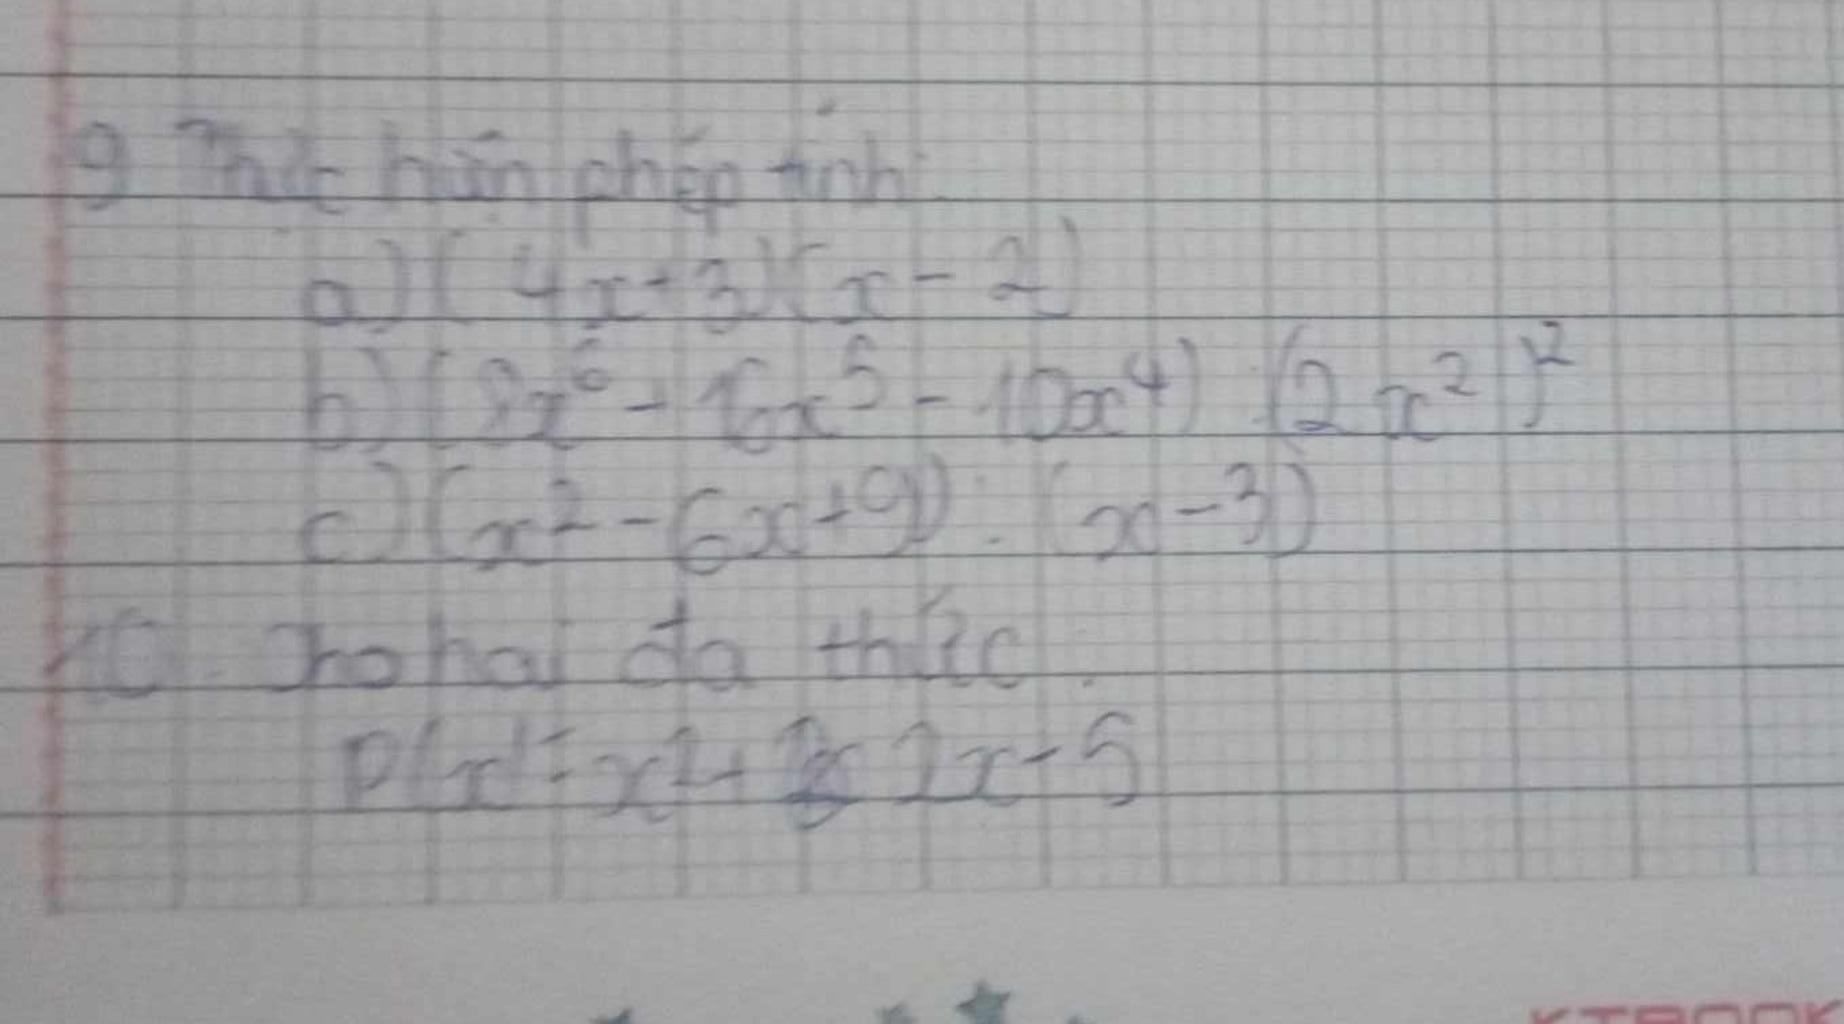 9 Thực hiện phép tính:
a) (4x-3)(x-2)
b) (8x⁶ - 16x⁵ - 10x⁴) : (2x²)²
c) (x² - 6x+9) : (x-3)
10. Cho hai đa thức:
P(x) = x² + 2x - 5
KTBOOK